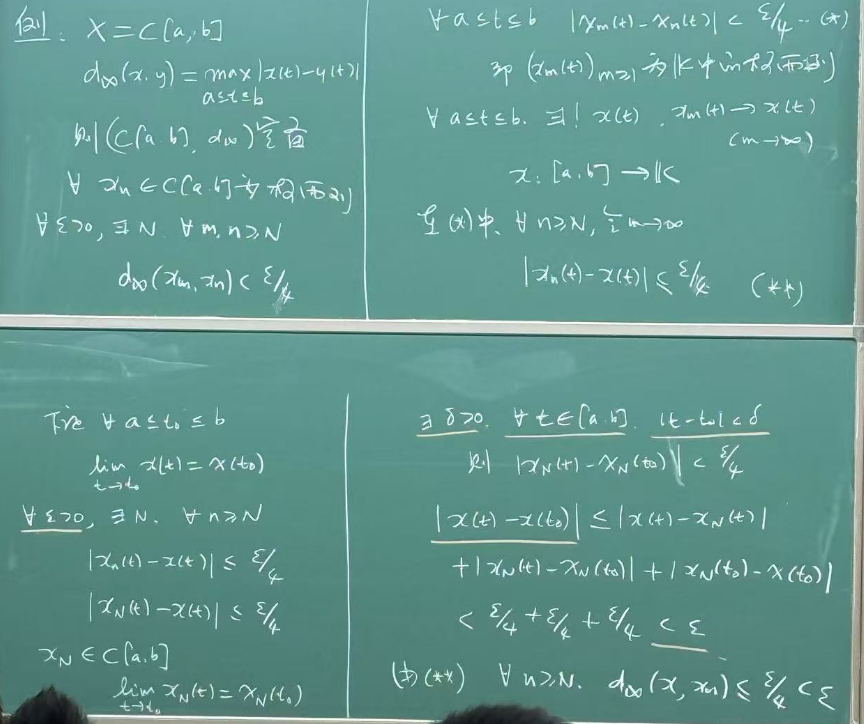 例: X = C[a,b]
d∞(x,y) = max |x(t)-y(t)|
a≤t≤b
则 (C[a,b], d∞) 完备
∀ xn ∈ C[a,b] 为 柯西列
∀ε>0, ∃N ∀m,n≥N
d∞(xm,xn) < ε/4
∀ a≤t≤b |xm(t)-xn(t)| < ε/4 ... (*)
即 (xm(t))m≥1 为 𝕂 中 的 柯西列
∀ a≤t≤b. ∃! x(t), xm(t) → x(t)
(m→∞)
x: [a,b] → 𝕂
在 (*) 中, ∀n≥N, 令 m→∞
|xn(t)-x(t)| ≤ ε/4 (**)
下证 ∀ a≤t0≤b
lim x(t) = x(t0)
t→t0
∀ε>0, ∃N. ∀n≥N
|xn(t)-x(t)| ≤ ε/4
|xN(t)-x(t)| ≤ ε/4
xN ∈ C[a,b]
lim xN(t) = xN(t0)
t→t0
∃δ>0. ∀t∈[a,b]. |t-t0|<δ
则 |xN(t)-xN(t0)| < ε/4
|x(t)-x(t0)| ≤ |x(t)-xN(t)|
+|xN(t)-xN(t0)|+|xN(t0)-x(t0)|
< ε/4+ε/4+ε/4 < ε
(由(**) ∀n≥N. d∞(x,xn) ≤ ε/4 < ε